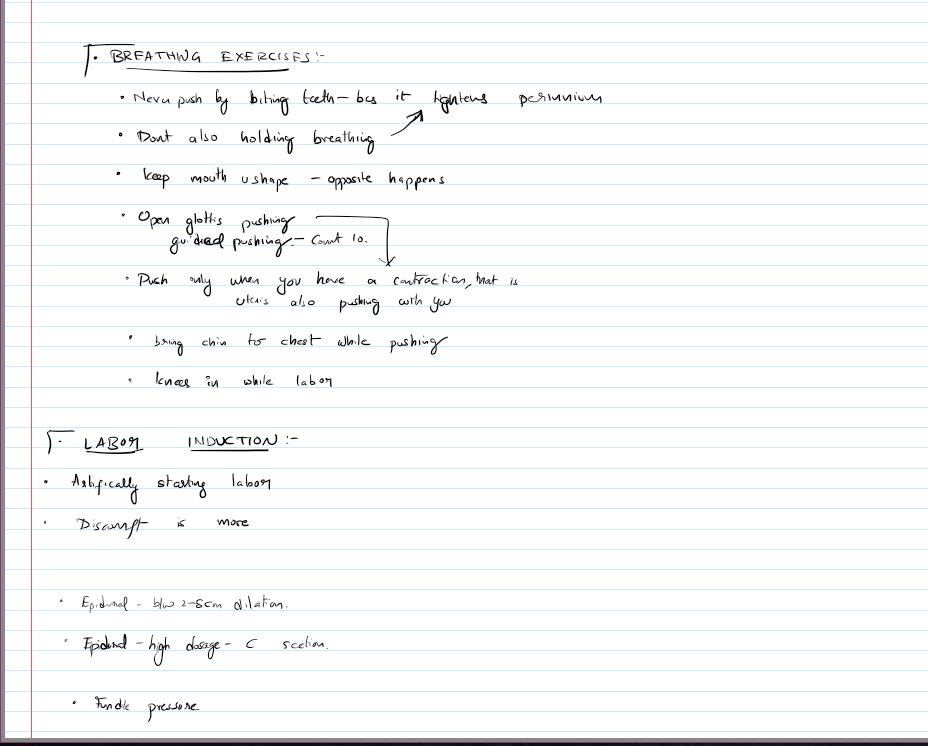 . BREATHING EXERCISES :-
• Never push by biting teeth - bcs it tightens perinnium
• Dont also holding breathing
• keep mouth u shape - opposite happens
• Open glottis pushing
guided pushing - Count 10.
• Push only when you have a contraction, that is
uterus also pushing with you
• bring chin to chest while pushing
• knees in while labor
. LABOR INDUCTION :-
• Artifically starting labor
• Discomft is more
• Epidural - b/w 2-5cm dilation.
• Epidural - high dosage - C section.
• Fundle pressure